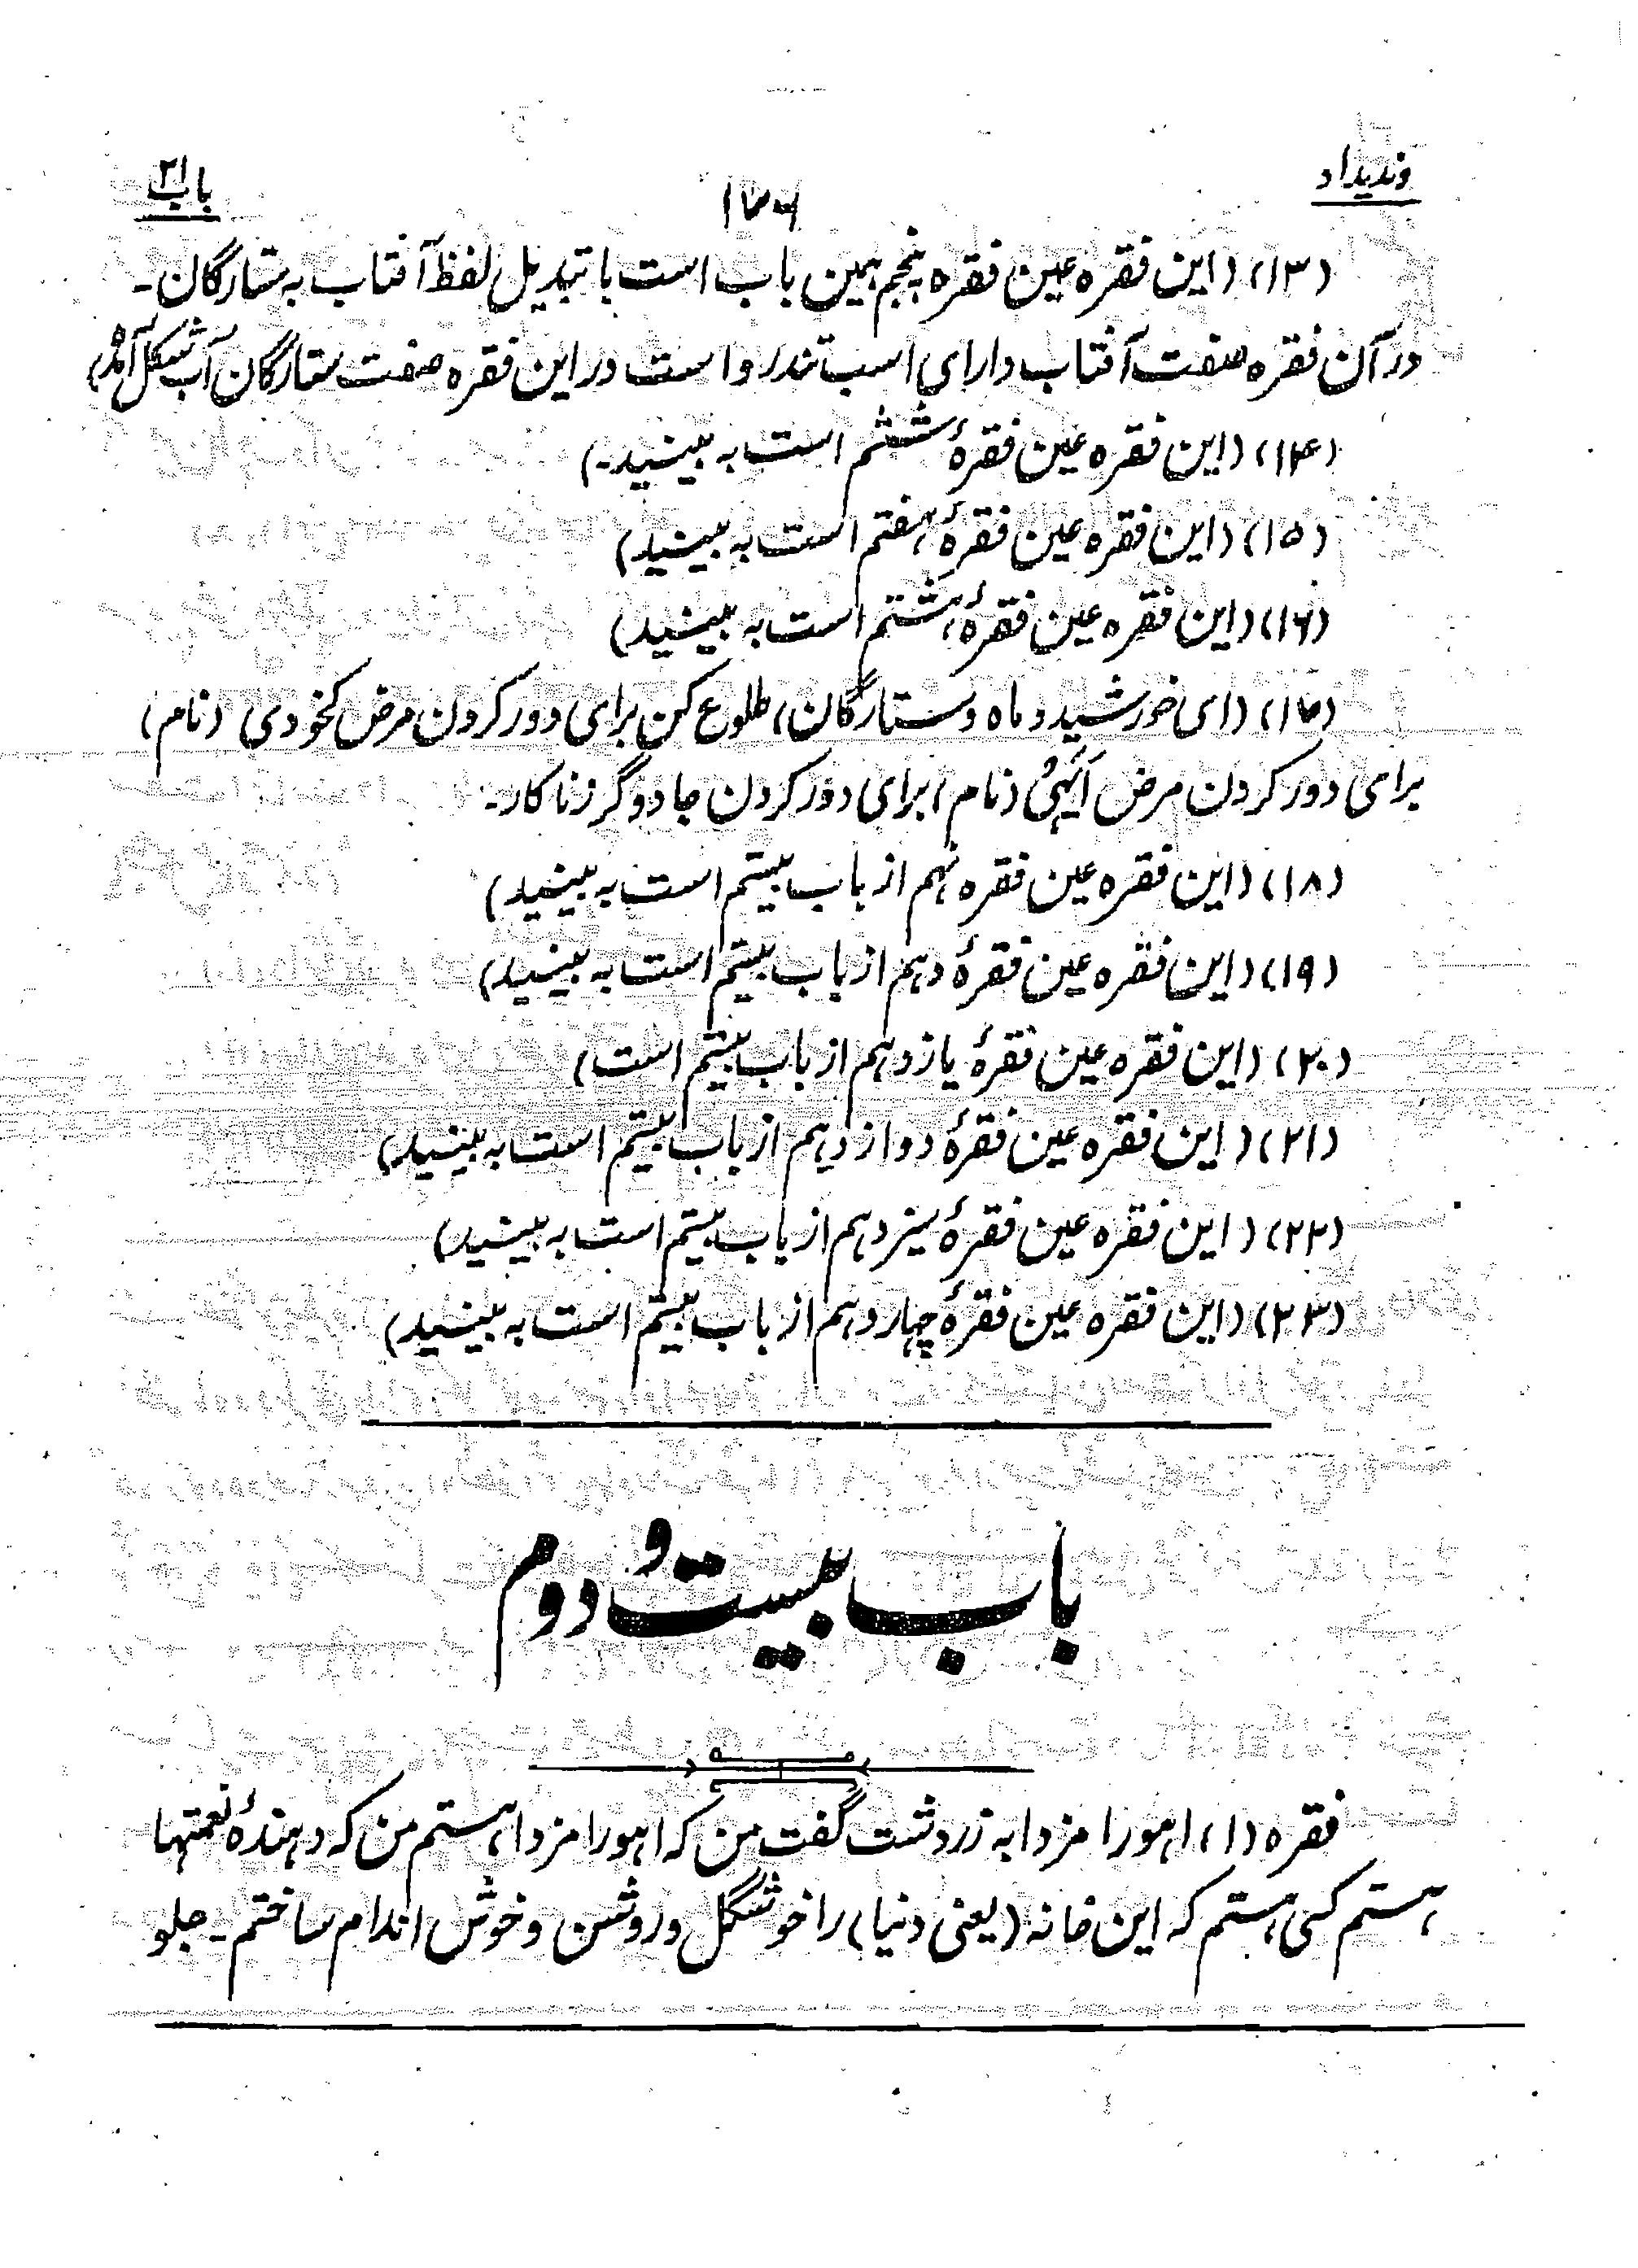 وندیداد
باب ۲۱
(۱۳) (این فقره عین فقره پنجم همین باب است با تبدیل لفظ آفتاب به ستارگان-
در آن فقره صفت آفتاب دارای اسب تندرو است در این فقره صفت ستارگان آب شکل آمده)
(۱۴) (این فقره عین فقرهٔ ششم است به بینید-)
(۱۵) (این فقره عین فقرهٔ هفتم است به بینید)
(۱۶) (این فقره عین فقرهٔ هشتم است به بینید)
(۱۷) (ای خورشید و ماه و ستارگان) طلوع کن برای دور کردن مرض کخودی (نام)
برای دور کردن مرض (نام) برای دور کردن جادوگر زناکار-
(۱۸) (این فقره عین فقره نهم از باب بیستم است به بینید)
(۱۹) (این فقره عین فقرهٔ دهم از باب بیستم است به بینید)
(۲۰) (این فقره عین فقرهٔ یازدهم از باب بیستم است)
(۲۱) (این فقره عین فقرهٔ دوازدهم از باب بیستم است به بینید)
(۲۲) (این فقره عین فقرهٔ سیزدهم از باب بیستم است به بینید)
(۲۳) (این فقره عین فقرهٔ چهاردهم از باب بیستم است به بینید)
باب بیست و دوم
فقره (۱) اهورا مزدا به زردشت گفت من که اهورا مزدا هستم من که دهندهٔ نعمتها
هستم کسی هستم که این خانه (یعنی دنیا) را خوشگل و روشن و خوش اندام ساختم- جلو